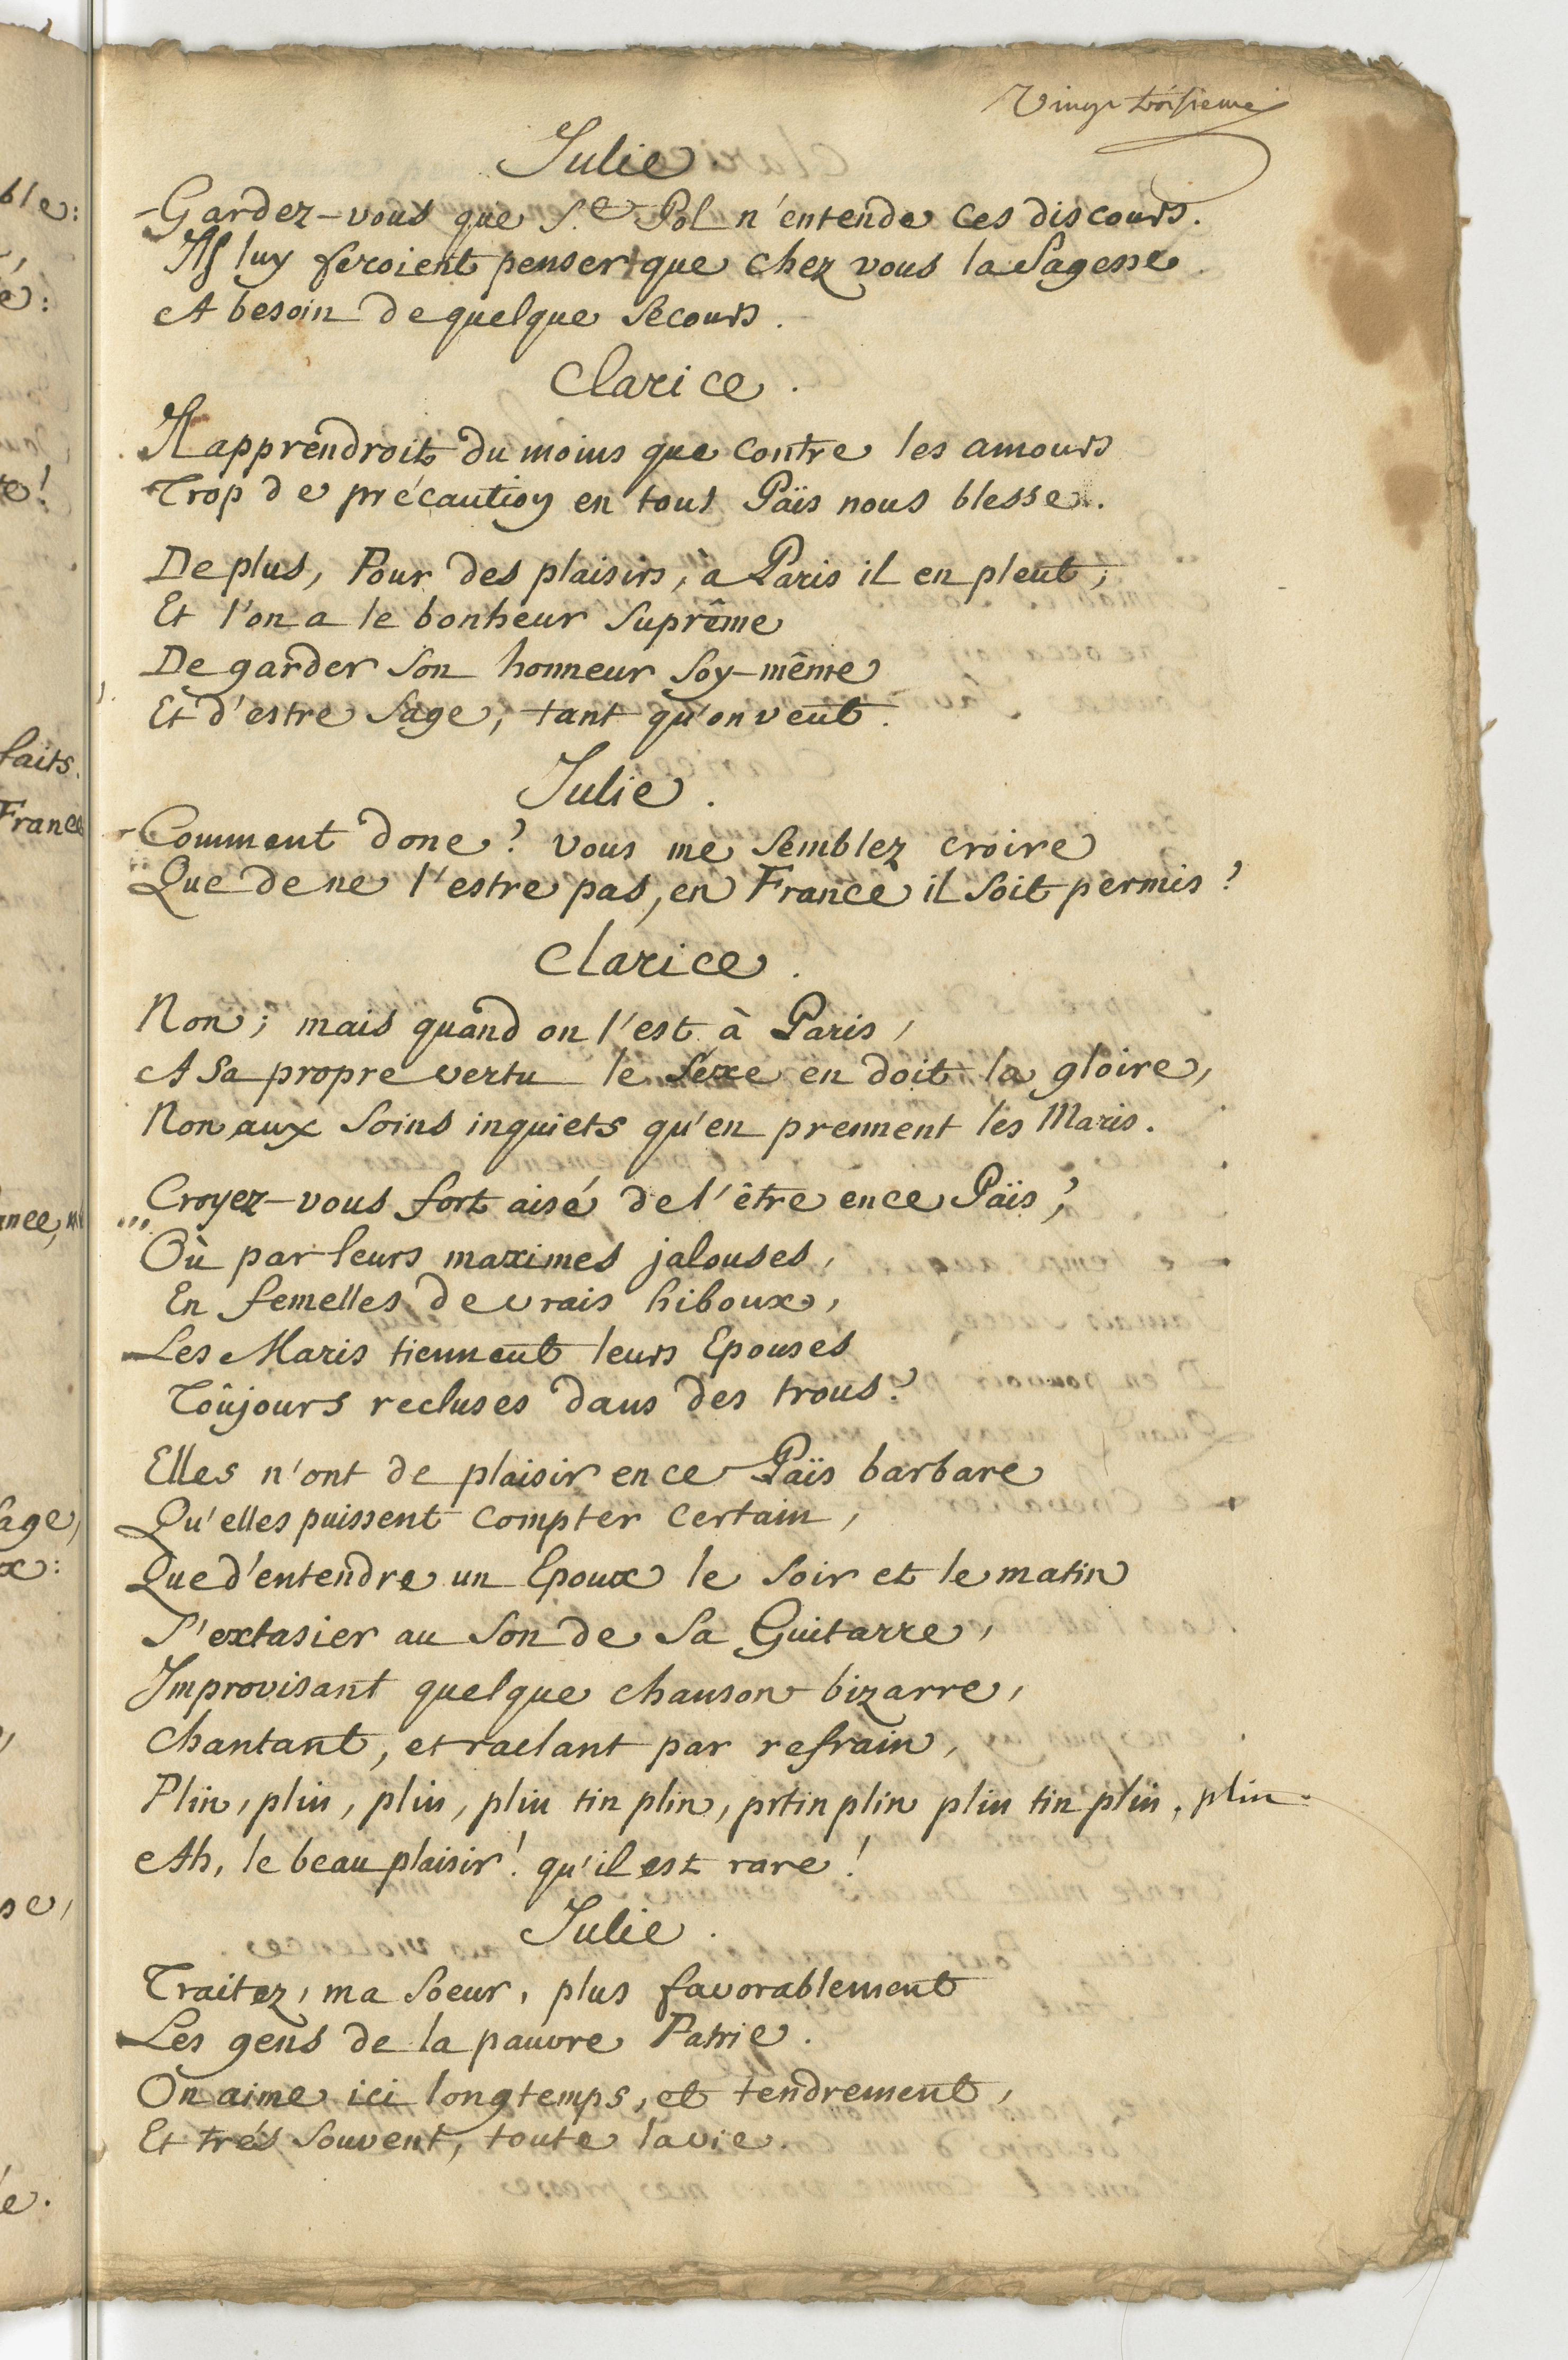 Vingt troisieme
Julie
-Gardez-vous que S.te Pol n'entende ces discours.
Ils luy feroient penser que chez vous la Sagesse
A besoin de quelque Secours.
Clarice.
Il apprendroit du moins que contre les amours
Trop de précaution en tous Païs nous blesse.
De plus, Pour des plaisirs, à Paris il en pleut;
Et l'on a le bonheur Suprême
De garder Son honneur Soy-même
Et d'estre Sage, tant qu'on veut.
Julie.
-Comment donc? vous me Semblez croire
Que de ne l'estre pas, en France il Soit permis?
Clarice.
Non; mais quand on l'est à Paris,
A Sa propre vertu le Séxe en doit la gloire,
Non aux Soins inquiets qu'en prennent les Maris.
,,,Croyez-vous fort aisé de l'être en ce Païs,
Où par leurs maximes jalouses,
En femelles de vrais hiboux,
Les Maris tiennent leurs Epouses
Toûjours recluses dans des trous?
Elles n'ont de plaisir en ce Païs barbare
Qu'elles puissent compter certain,
Que d'entendre un Epoux le Soir et le matin
S'extasier au Son de Sa Guitarre,
Improvisant quelque chanson bizarre,
Chantant, et raclant par refrain,
Plin, plin, plin, plin tin plin, prtin plin plin tin plin, plin.
Ah, le beau plaisir! qu'il est rare!
Julie.
Traitez, ma Soeur, plus favorablement
Les gens de la pauvre Patrie.
On aime ici longtemps, et tendrement,
Et trés Souvent, toute la vie.
ble:
e:
te!
faits.
France
sage,
x:
se,
e.